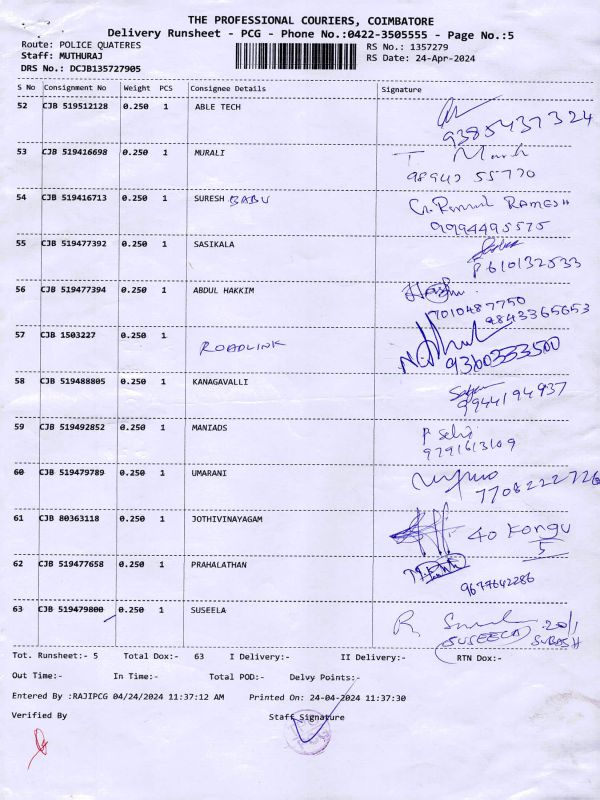 THE PROFESSIONAL COURIERS, COIMBATORE
Delivery Runsheet - PCG - Phone No.:0422-3505555 - Page No.:5
Route: POLICE QUATERES RS No.: 1357279
Staff: MUTHURAJ RS Date: 24-Apr-2024
DRS No.: DCJB135727905
S No Consignment No Weight PCS Consignee Details Signature
52 CJB 519512128 0.250 1 ABLE TECH
9385437324
53 CJB 519416698 0.250 1 MURALI
98942 55770
54 CJB 519416713 0.250 1 SURESH BABU RAMESH
9994495575
55 CJB 519477392 0.250 1 SASIKALA
8610132533
56 CJB 519477394 0.250 1 ABDUL HAKKIM
7010487750
9843365653
57 CJB 1503227 0.250 1
ROADLINK
9360333500
58 CJB 519488805 0.250 1 KANAGAVALLI
9944194937
59 CJB 519492852 0.250 1 MANIADS
9791613109
60 CJB 519479789 0.250 1 UMARANI
7708222726
61 CJB 80363118 0.250 1 JOTHIVINAYAGAM
40 Kongu
5
62 CJB 519477658 0.250 1 PRAHALATHAN
9677642286
63 CJB 519479800 0.250 1 SUSEELA
SUSEELA SUBASH
Tot. Runsheet:- 5 Total Dox:- 63 I Delivery:- II Delivery:- RTN Dox:-
Out Time:- In Time:- Total POD:- Delvy Points:-
Entered By :RAJIPCG 04/24/2024 11:37:12 AM Printed On: 24-04-2024 11:37:30
Verified By Staff Signature